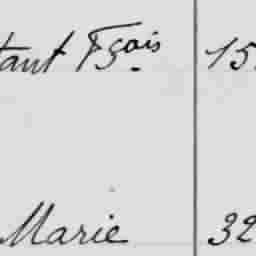 tant Fçois 15
Marie 32